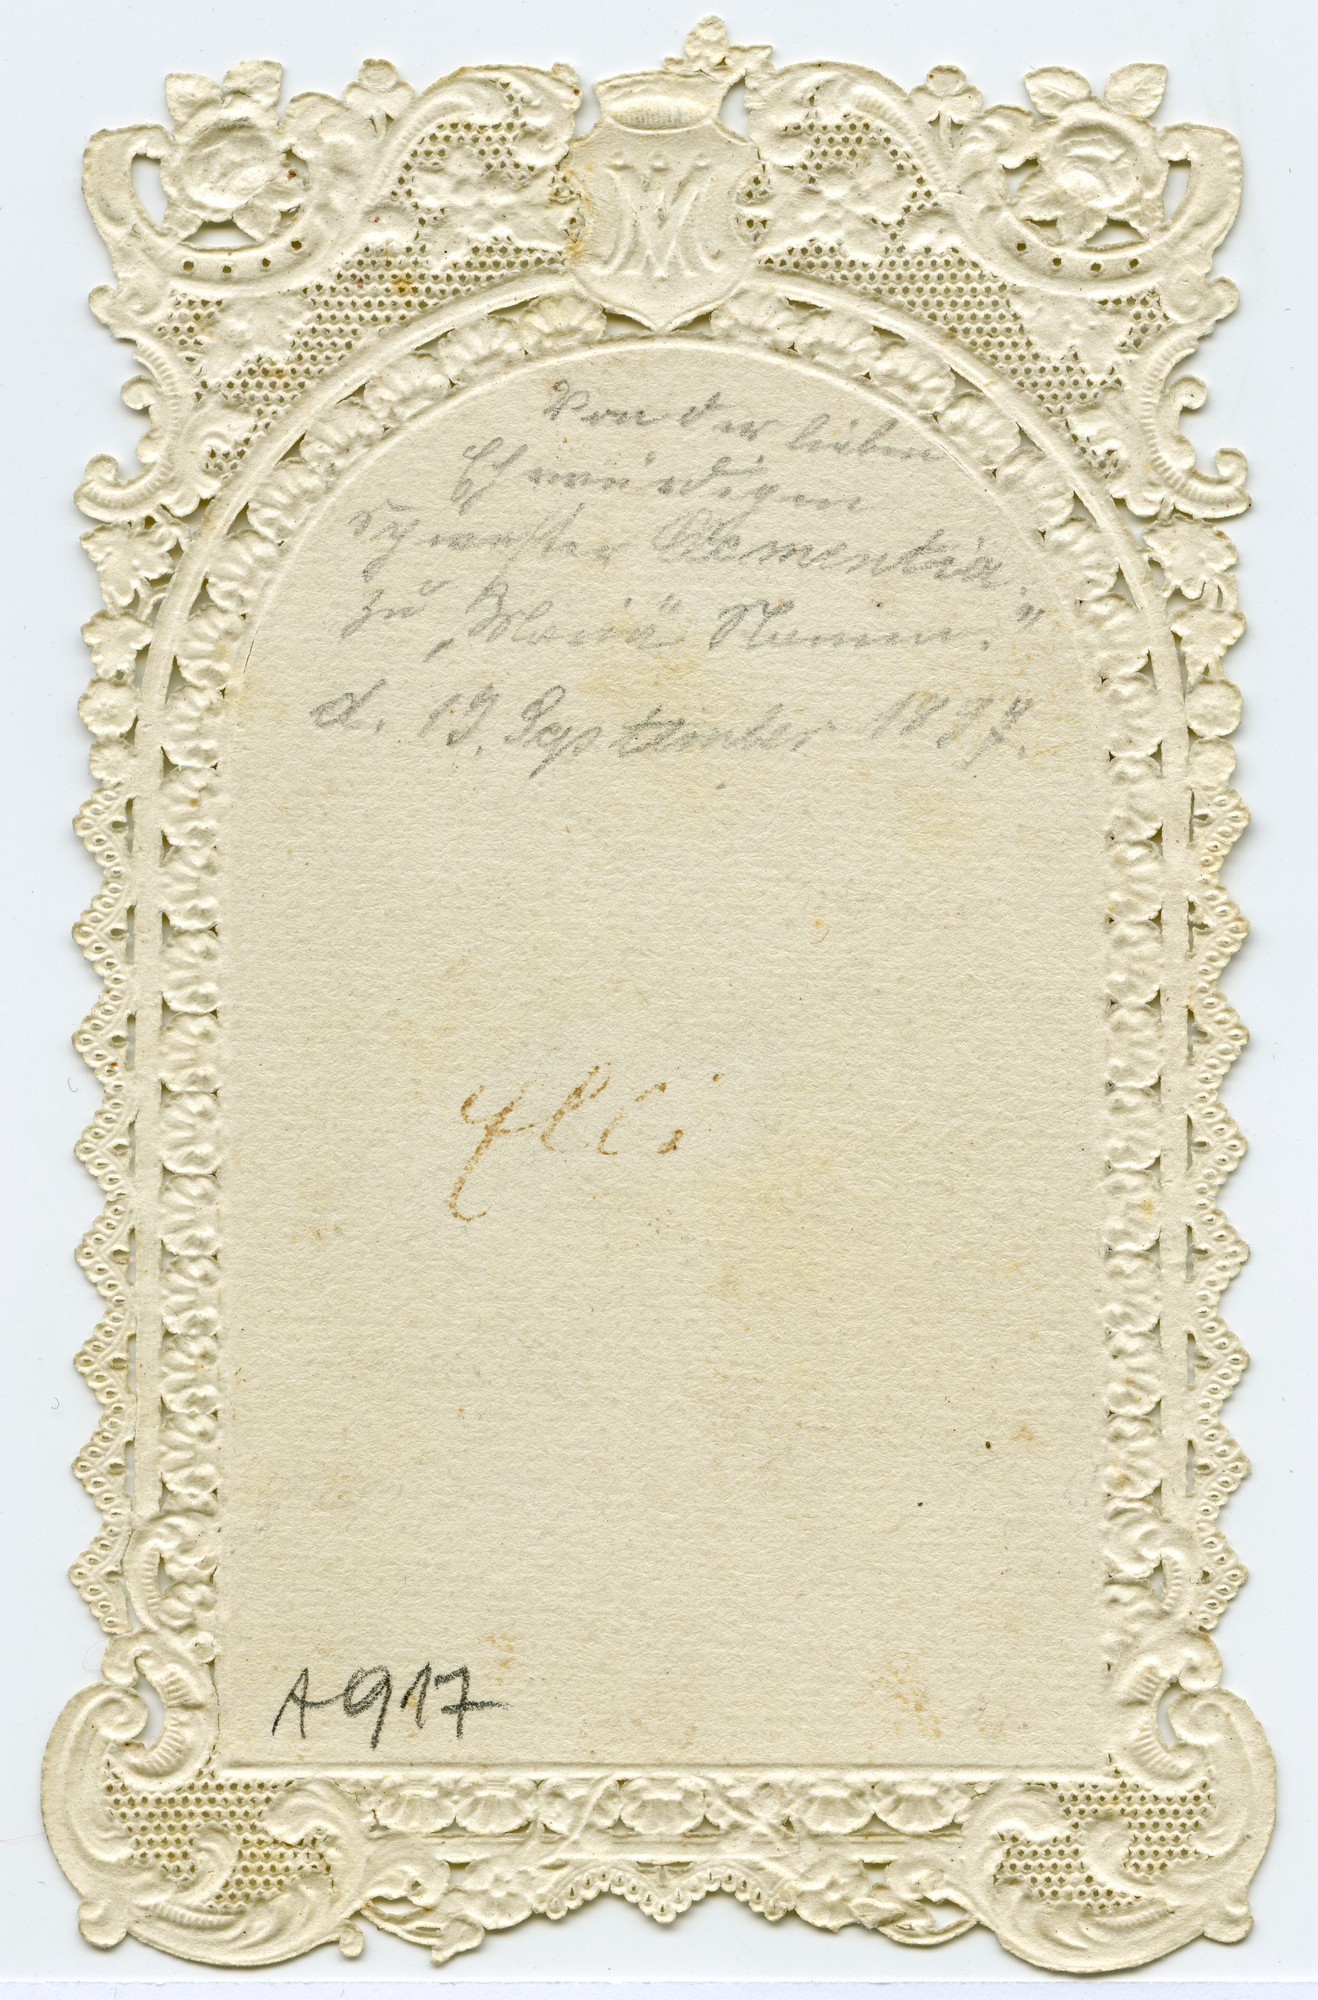 Von der lieben
Ehrwürdigen
Schwester Clementia,
zu „Mariä" Namen."
d. 19. September 1897.
Elli
A 917